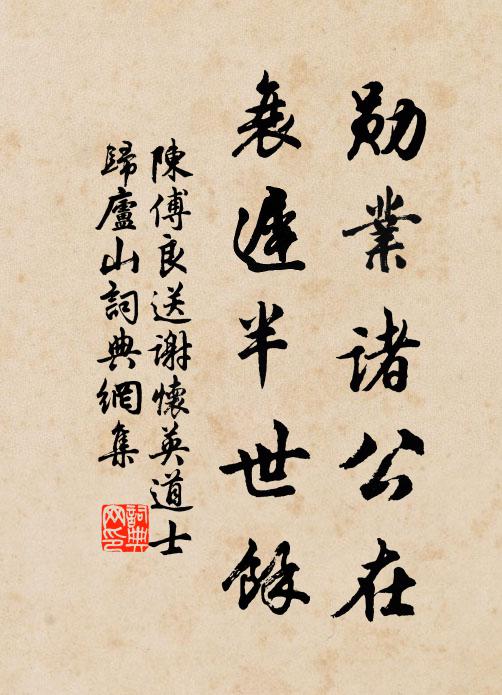 勛業諸公在
衰遲半世餘
陳傅良送謝懷英道士
歸廬山詞典網集
詞典
网印